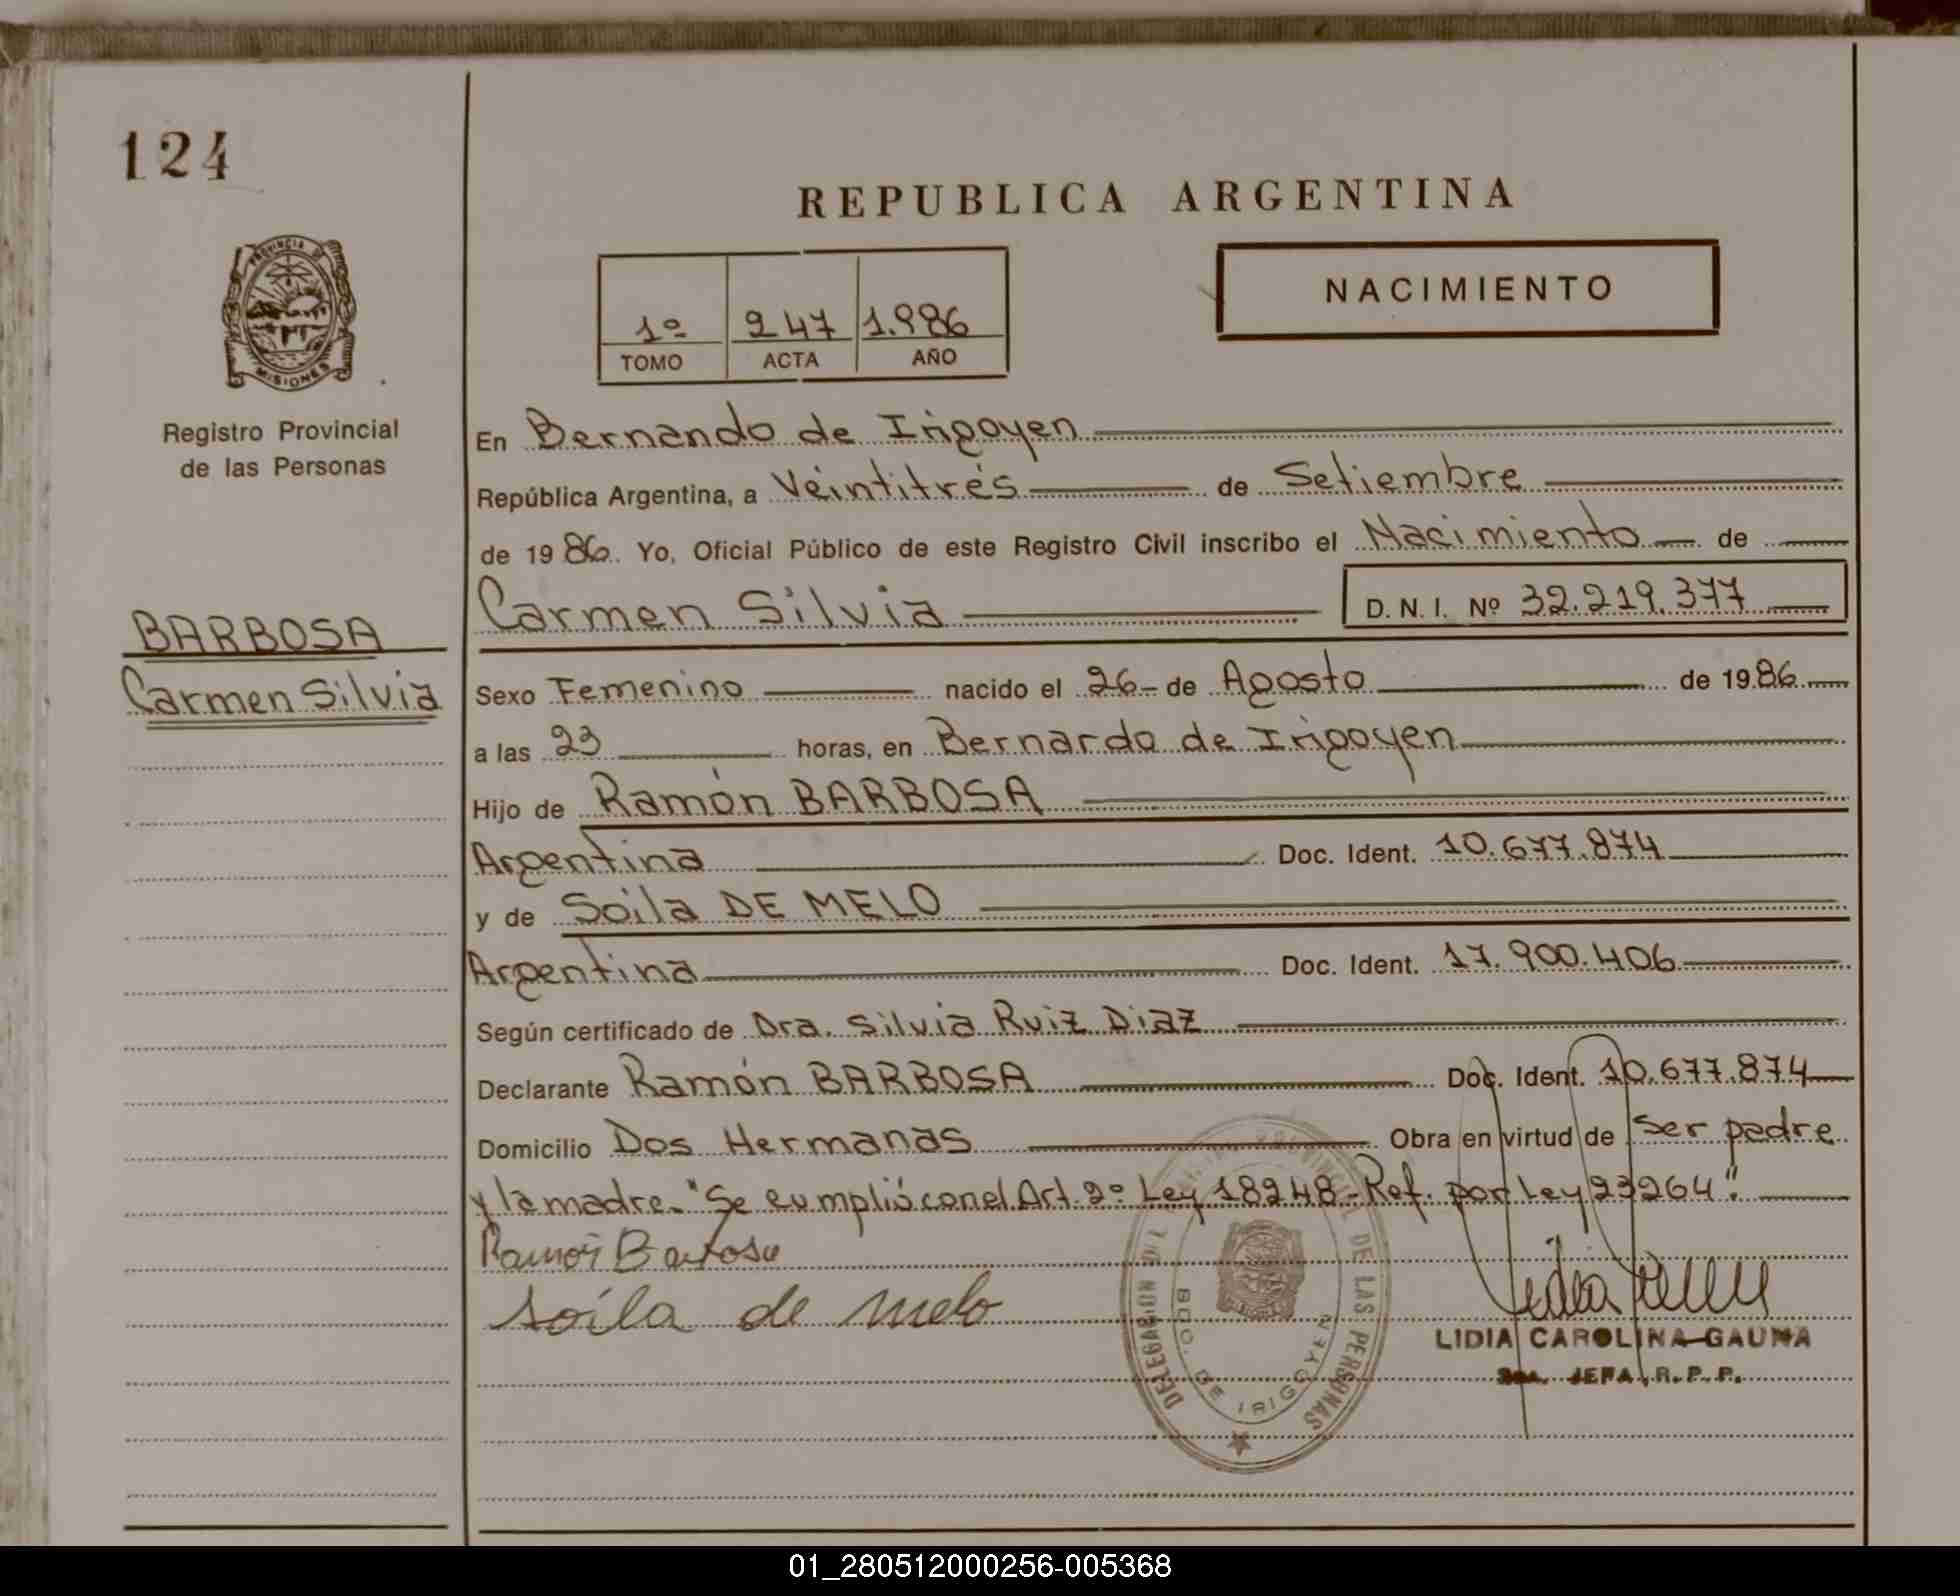 124
REPUBLICA ARGENTINA
PROVINCIA DE
MISIONES
Registro Provincial
de las Personas
1º 247 1.986
TOMO ACTA AÑO
NACIMIENTO
En Bernardo de Irigoyen
República Argentina, a Veintitrés de Setiembre
de 1986. Yo, Oficial Público de este Registro Civil inscribo el Nacimiento de
Carmen Silvia D.N.I. Nº 32.219.377
BARBOSA
Carmen Silvia
Sexo Femenino nacido el 26 de Agosto de 1986
a las 23 horas, en Bernardo de Irigoyen
Hijo de Ramón BARBOSA
Argentina Doc. Ident. 10.677.874
y de Soila DE MELO
Argentina Doc. Ident. 17.900.406
Según certificado de Dra. Silvia Ruiz Diaz
Declarante Ramón BARBOSA Doc. Ident. 10.677.874
Domicilio Dos Hermanas Obra en virtud de Ser padre
y la madre. "Se cumplió con el Art. 2º Ley 18248-Ref. por Ley 23264".
Ramón Barbosa
Soila de melo
DELEGACION DEL REGISTRO PROVINCIAL DE LAS PERSONAS
BDO. DE IRIGOYEN
LIDIA CAROLINA GAUNA
JEFA R.P.P.
01_280512000256-005368